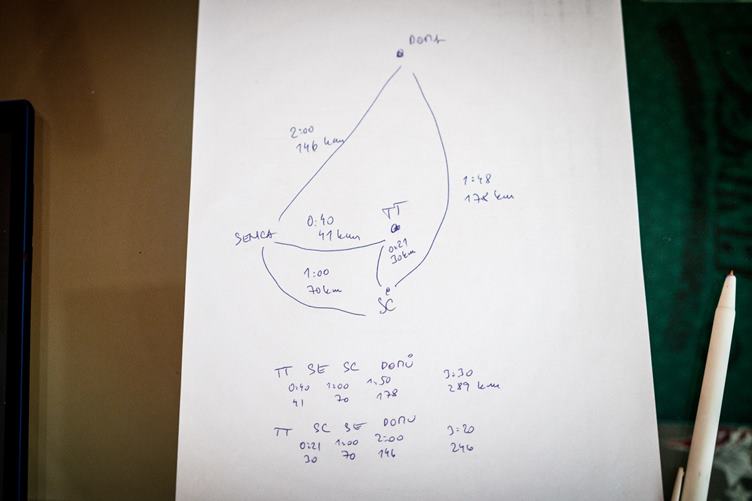 DOMA
2:00
146 km
1:48
178 km
TT
SENICA
0:40
41 km
0:21
30km
1:00
70 km
SC
TT SE SC DOMŮ 3:30
0:40 1:00 1:50 289 km
41 70 178
TT SC SE DOMŮ 3:20
0:21 1:00 2:00 246
30 70 146